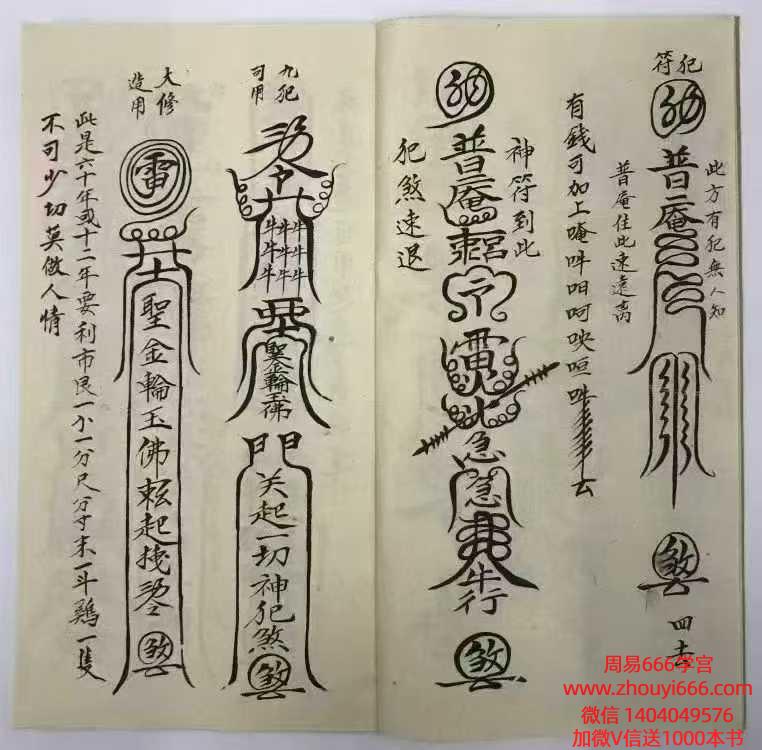 犯符
普庵
此方有犯無人知
普庵住此速遠离
煞
四去
有錢可加上唵吽呬呵咉咺
普庵
神符到此
犯煞速退
雷
火
急急
牛行
煞
九犯可用
牛牛牛
牛牛牛
牛牛牛
聖金輪玉佛
門
关起一切神犯煞
煞
大修造用
雷
聖金輪玉佛
起
煞
此是六十年或十二年要利市艮一小一分尺分寸米一斗鷄一隻
不可少切莫做人情
周易666学宫
www.zhouyi666.com
微信 1404049576
加微V信送1000本书